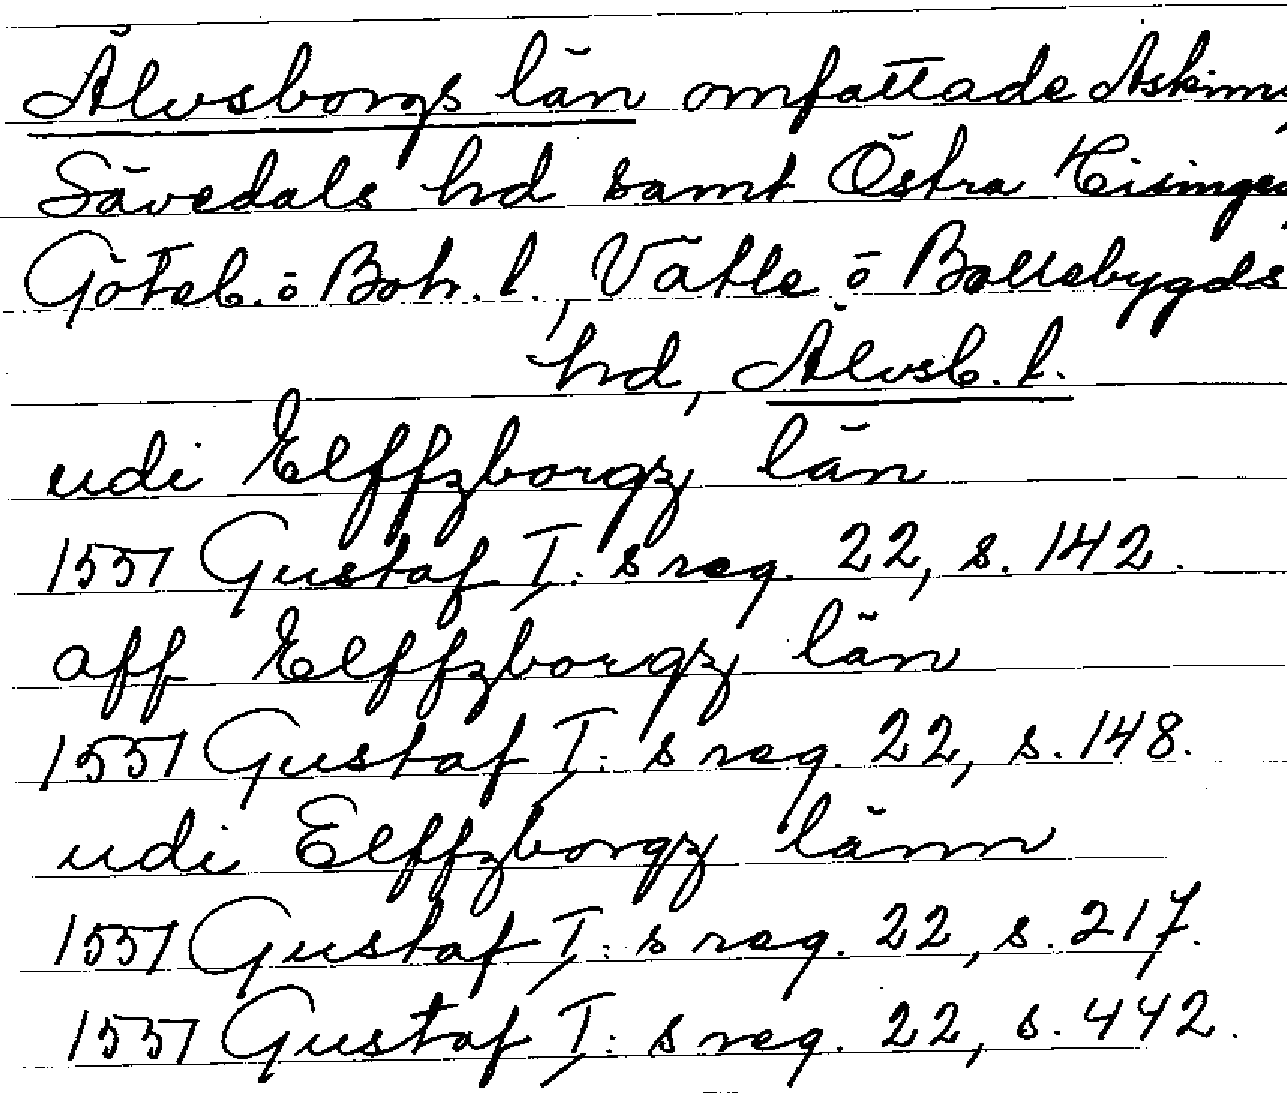 Älvsborgs län omfattade Askims,
Sävedals hd samt Östra Hisingen,
Göteb. o Boh. l., Vätle o Bollebygds
hd, Älvsb. l.
udi Elffzborgz län
1557 Gustaf I:s reg. 22, s. 142.
aff Elffzborgz län
1557 Gustaf I:s reg. 22, s. 148.
udi Elffzborgz länn
1557 Gustaf I:s reg. 22, s. 217.
1557 Gustaf I:s reg. 22, s. 442.